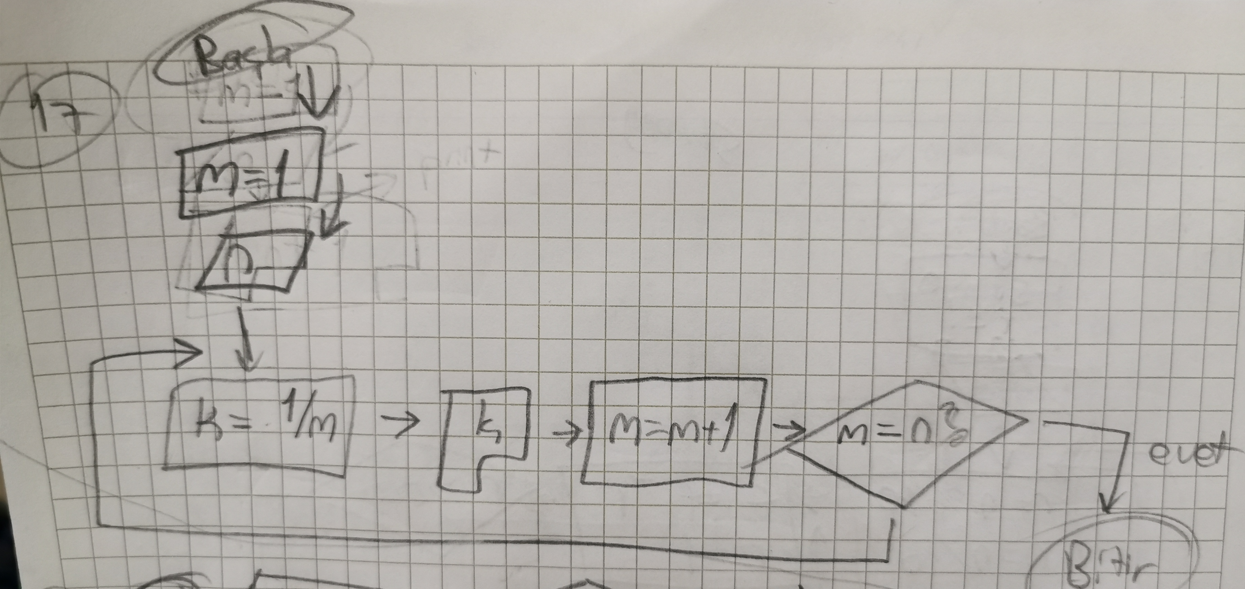 Başla
17
m=1
n
k= 1/m
k
m=m+1
m=n?
evet
Bitir